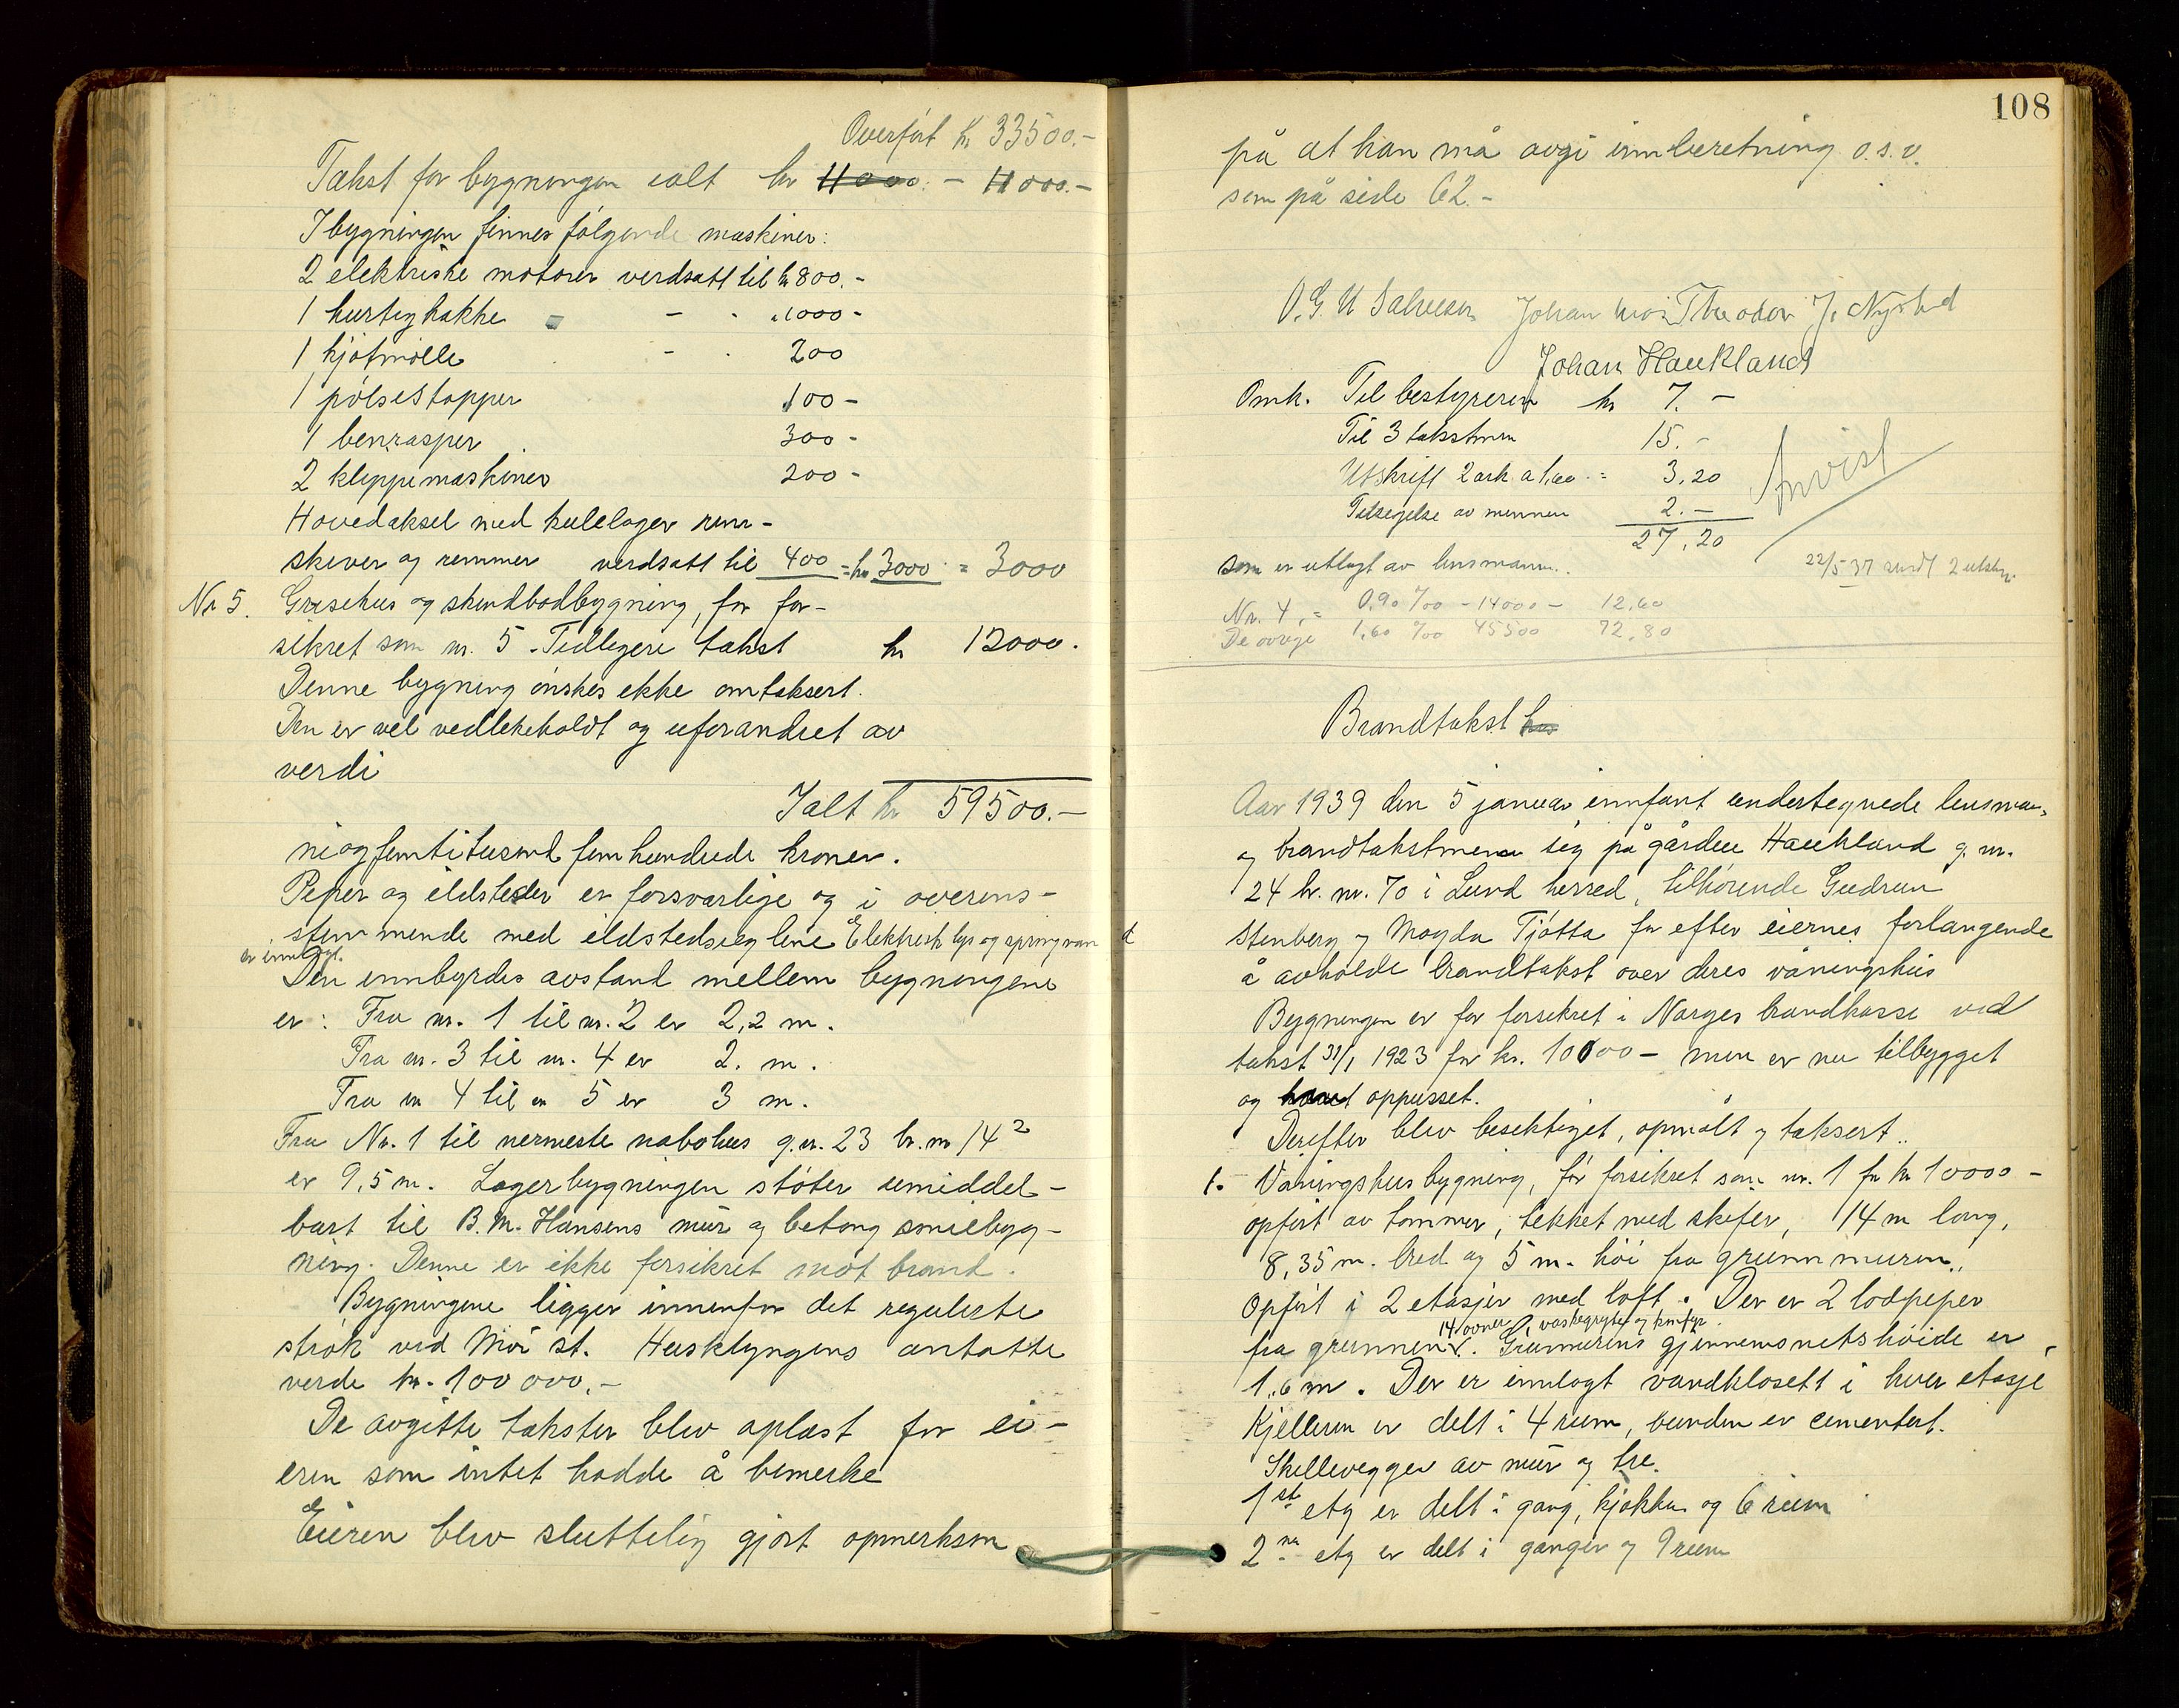 Overført kr 33500.-
Takst for bygningen ialt kr 11000.- 11000.-
I bygningen finnes følgende maskiner:
2 elektriske motorer verdsatt til kr 800.-
1 hurtighakke - " 1000-
1 kjøtmølle - " 200
1 pølsestopper 100-
1 benrasper 300-
2 klippemaskiner 200-
Hovedaksel med kulelager rem-
skiver og remmer verdsatt til 400 = kr 3000 = 3000
Nr 5. Grisehus og skurdbodbygning, før for-
sikret som nr. 5 - Tidligere takst kr 12000.
Denne bygning ønskes ikke omtaksert.
Den er vel vedlikeholdt og uforandret av
verdi
Ialt kr 59500.-
niogfemtitusend femhundrede kroner.
Piper og ildsteder er forsvarlige og i overens-
stemmende med ildstedsreglene Elektrisk lys og springvand
er innlagt.
Den innbyrdes avstand mellem bygningene
er: Fra nr. 1 til nr. 2 er 2,2 m.
Fra nr. 3 til nr. 4 er 2. m.
Fra nr 4 til nr 5 er 3 m.
Fra Nr. 1 til nermeste nabohus g.nr. 23 br.nr 14²
er 9,5 m. Lagerbygningen støter umiddel-
bart til B.M. Hansens mur og betong smiebyg-
ning. Denne er ikke forsikret mot brand.
Bygningene ligger innenfor det regulerte
strøk ved Moi st. Husklyngens antatte
verde kr. 100 000.-
De avgitte takster blev oplæst for ei-
eren som intet hadde å bemerke
Eieren blev sluttelig gjort opmerksom
108
på at han må avgi innberetning o.s.v.
som på side 62.-
O.G.U Salvesen Johan Moi Theodor J. Nystad
Johan Haukland
Omk. Til bestyreren kr 7.-
Til 3 takstmen 15.-
Utskrift 2 ark a 1,60 = 3,20
Tilsigelse av mennene 2.-
27,20
Anvist
som er utlagt av lensmann.
22/5 37 sendt 2 utskr.
Nr. 4, = 0,90 ‰ - 14000 - 12,60
De øvrige 1,60 ‰ 45500 72,80
Brandtakst hos
Aar 1939 den 5 januar innfant undertegnede lensman,
og brandtakstmenn sig på gården Haukland g. nr.
24 br. nr. 70 i Lund herred, tilhørende Gudrun
Stenberg og Magda Tjøtta for efter eiernes forlangende
å avholde brandtakst over deres våningshus
Bygningen er før forsikret i Norges brandkasse ved
takst 31/1 1923 for kr. 10000- men er nu tilbygget
og oppusset.
Derefter blev besiktiget, opmålt og taksert..
1. Våningshusbygning, før forsikret som nr. 1 for kr 10000-
opført av tømmer, tekket med skifer, 14 m lang,
8,35 m. bred og 5 m. høi fra grunnmuren.
Opført i 2 etasjer med loft. Der er 2 lodpiper
14 ovner, vaskegryte og komfyr.
fra grunnen v. Grunmurens gjennemsnetshøide er
1,6 m. Der er innlagt vandklosett i hver etasje
Kjelleren er delt i 4 rum, bunden er cementert.
Skillevegger av mur og tre.
1st etg er delt i gang, kjøkken og 6 rum
2nn etg er delt i ganger og 9 rum